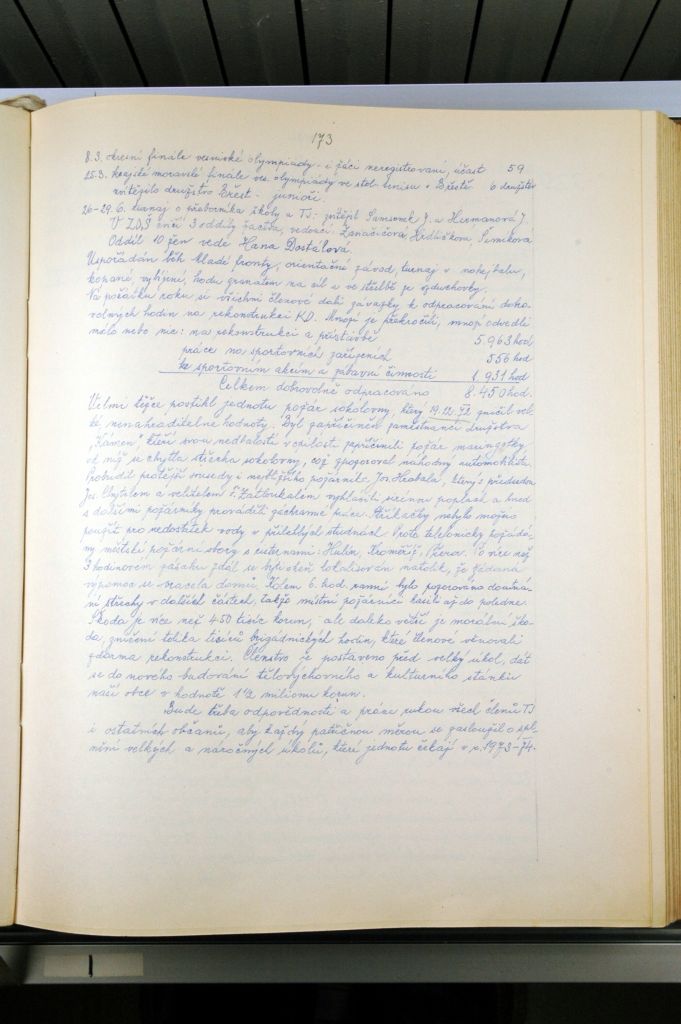 173
8.3. okresní finále vesnické olympiády - i žáci neregistrovaní, účast 59
25.3. krajské moravské finále ves. olympiády ve stol. tenisu v Břestě 6 družstev
zvítězilo družstvo Břest - junioři.
26-29.6. turnaj o přeborníka školy a TJ: zvítězil Simonek J. a Heřmanová J.
V ZDŠ cvičí 3 oddíly žactva, vedoucí: Hrdličková, Šimíková
Oddíl 10 žen vede Hana Dostálová.
Uspořádán běh Mladé fronty, orientační závod, turnaj v nohejbalu,
kopané, vybíjené, hodu granátem na cíl a ve střelbě ze vzduchovky.
Na počátku roku si všichni členové dali závazky k odpracování dobro-
volných hodin na rekonstrukci KD. Mnozí je překročili, mnozí odvedli
málo nebo nic: na rekonstrukci a přístavbě 5.963 hod
práce na sportovních zařízeních 556 hod
ke sportovním akcím a zábavní činnosti 1.931 hod
Celkem dobrovolně odpracováno 8.450 hod.
Velmi těžce postihl jednotu požár sokolovny, který 19.12.72 zničil vel-
ké, nenahraditelné hodnoty. Byl zapříčiněn zaměstnanci družstva
"Kámen" kteří svou nedbalostí v opilosti zapříčinili požár maringotky
od níž se chytla střecha sokolovny, což zpozoroval náhodný automobilista.
Probudil protější sousedy i nejbližšího požárníka Jos. Hrabala, který s předsedou
Jos. Chytilem a velitelem Fr. Zatloukalem vyhlásili sirénou poplach a hned
s dalšími požárníky prováděli záchranné práce. Stříkačky nebylo možno
použít pro nedostatek vody v přilehlých studnách. Proto telefonicky požádá-
ny městské požární sbory s cisternami: Hulín, Kroměříž, Přerov. Po více než
3 hodinovém zásahu zdál se být oheň lokalisován natolik, že žádaná
výpomoc se vracela domů. Kolem 6. hod. ranní bylo pozorováno doutná-
ní střechy v dalších částech, takže místní požárníci hasili až do poledne.
Škoda je více než 450 tisíc korun, ale daleko větší je morální ško-
da, zničení tolika tisíců brigádnických hodin, které členové věnovali
zdarma rekonstrukci. Členstvo je postaveno před velký úkol, dát
se do nového budování tělovýchovného a kulturního stánku
naší obce v hodnotě 1 1/2 milionu korun.
Bude třeba odpovědností a prácerukou všech členů TJ
i ostatních občanů, aby každý patřičnou měrou se zasloužil o spl-
nění velkých a náročných úkolů, které jednotu čekají v r. 1973-74.